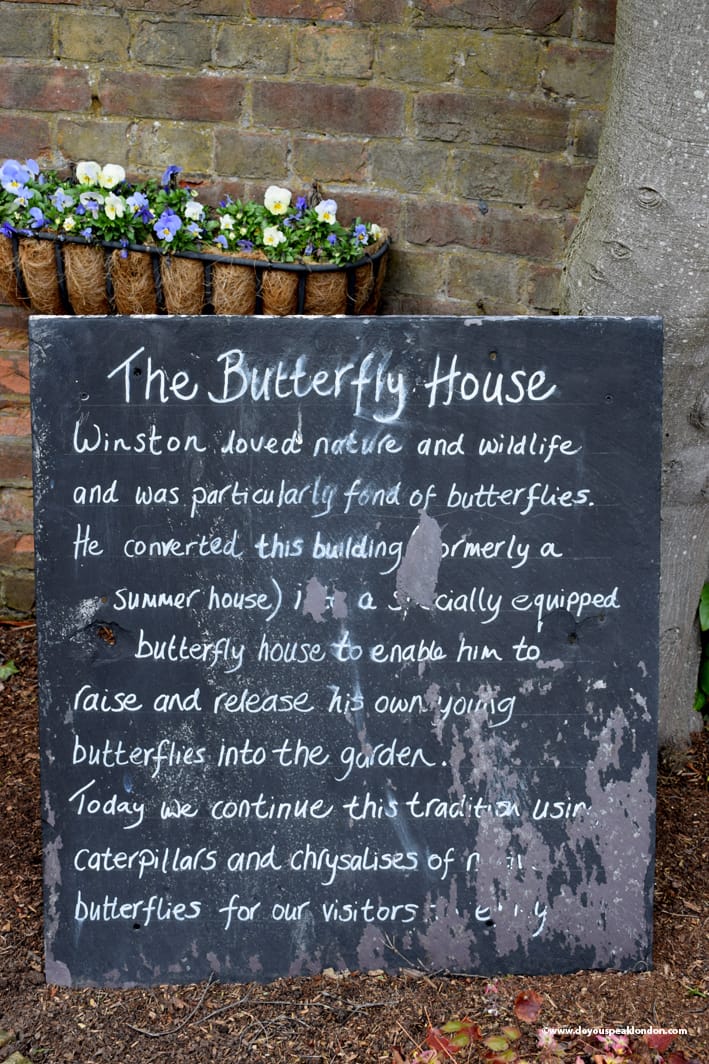 The Butterfly House
Winston loved nature and wildlife
and was particularly fond of butterflies.
He converted this building ormerly a
summer house) a cially equipped
butterfly house to enable him to
raise and release his own young
butterflies into the garden.
Today we continue this tradition usin
caterpillars and chrysalises of
butterflies for our visitors
©www.doyouspeaklondon.com